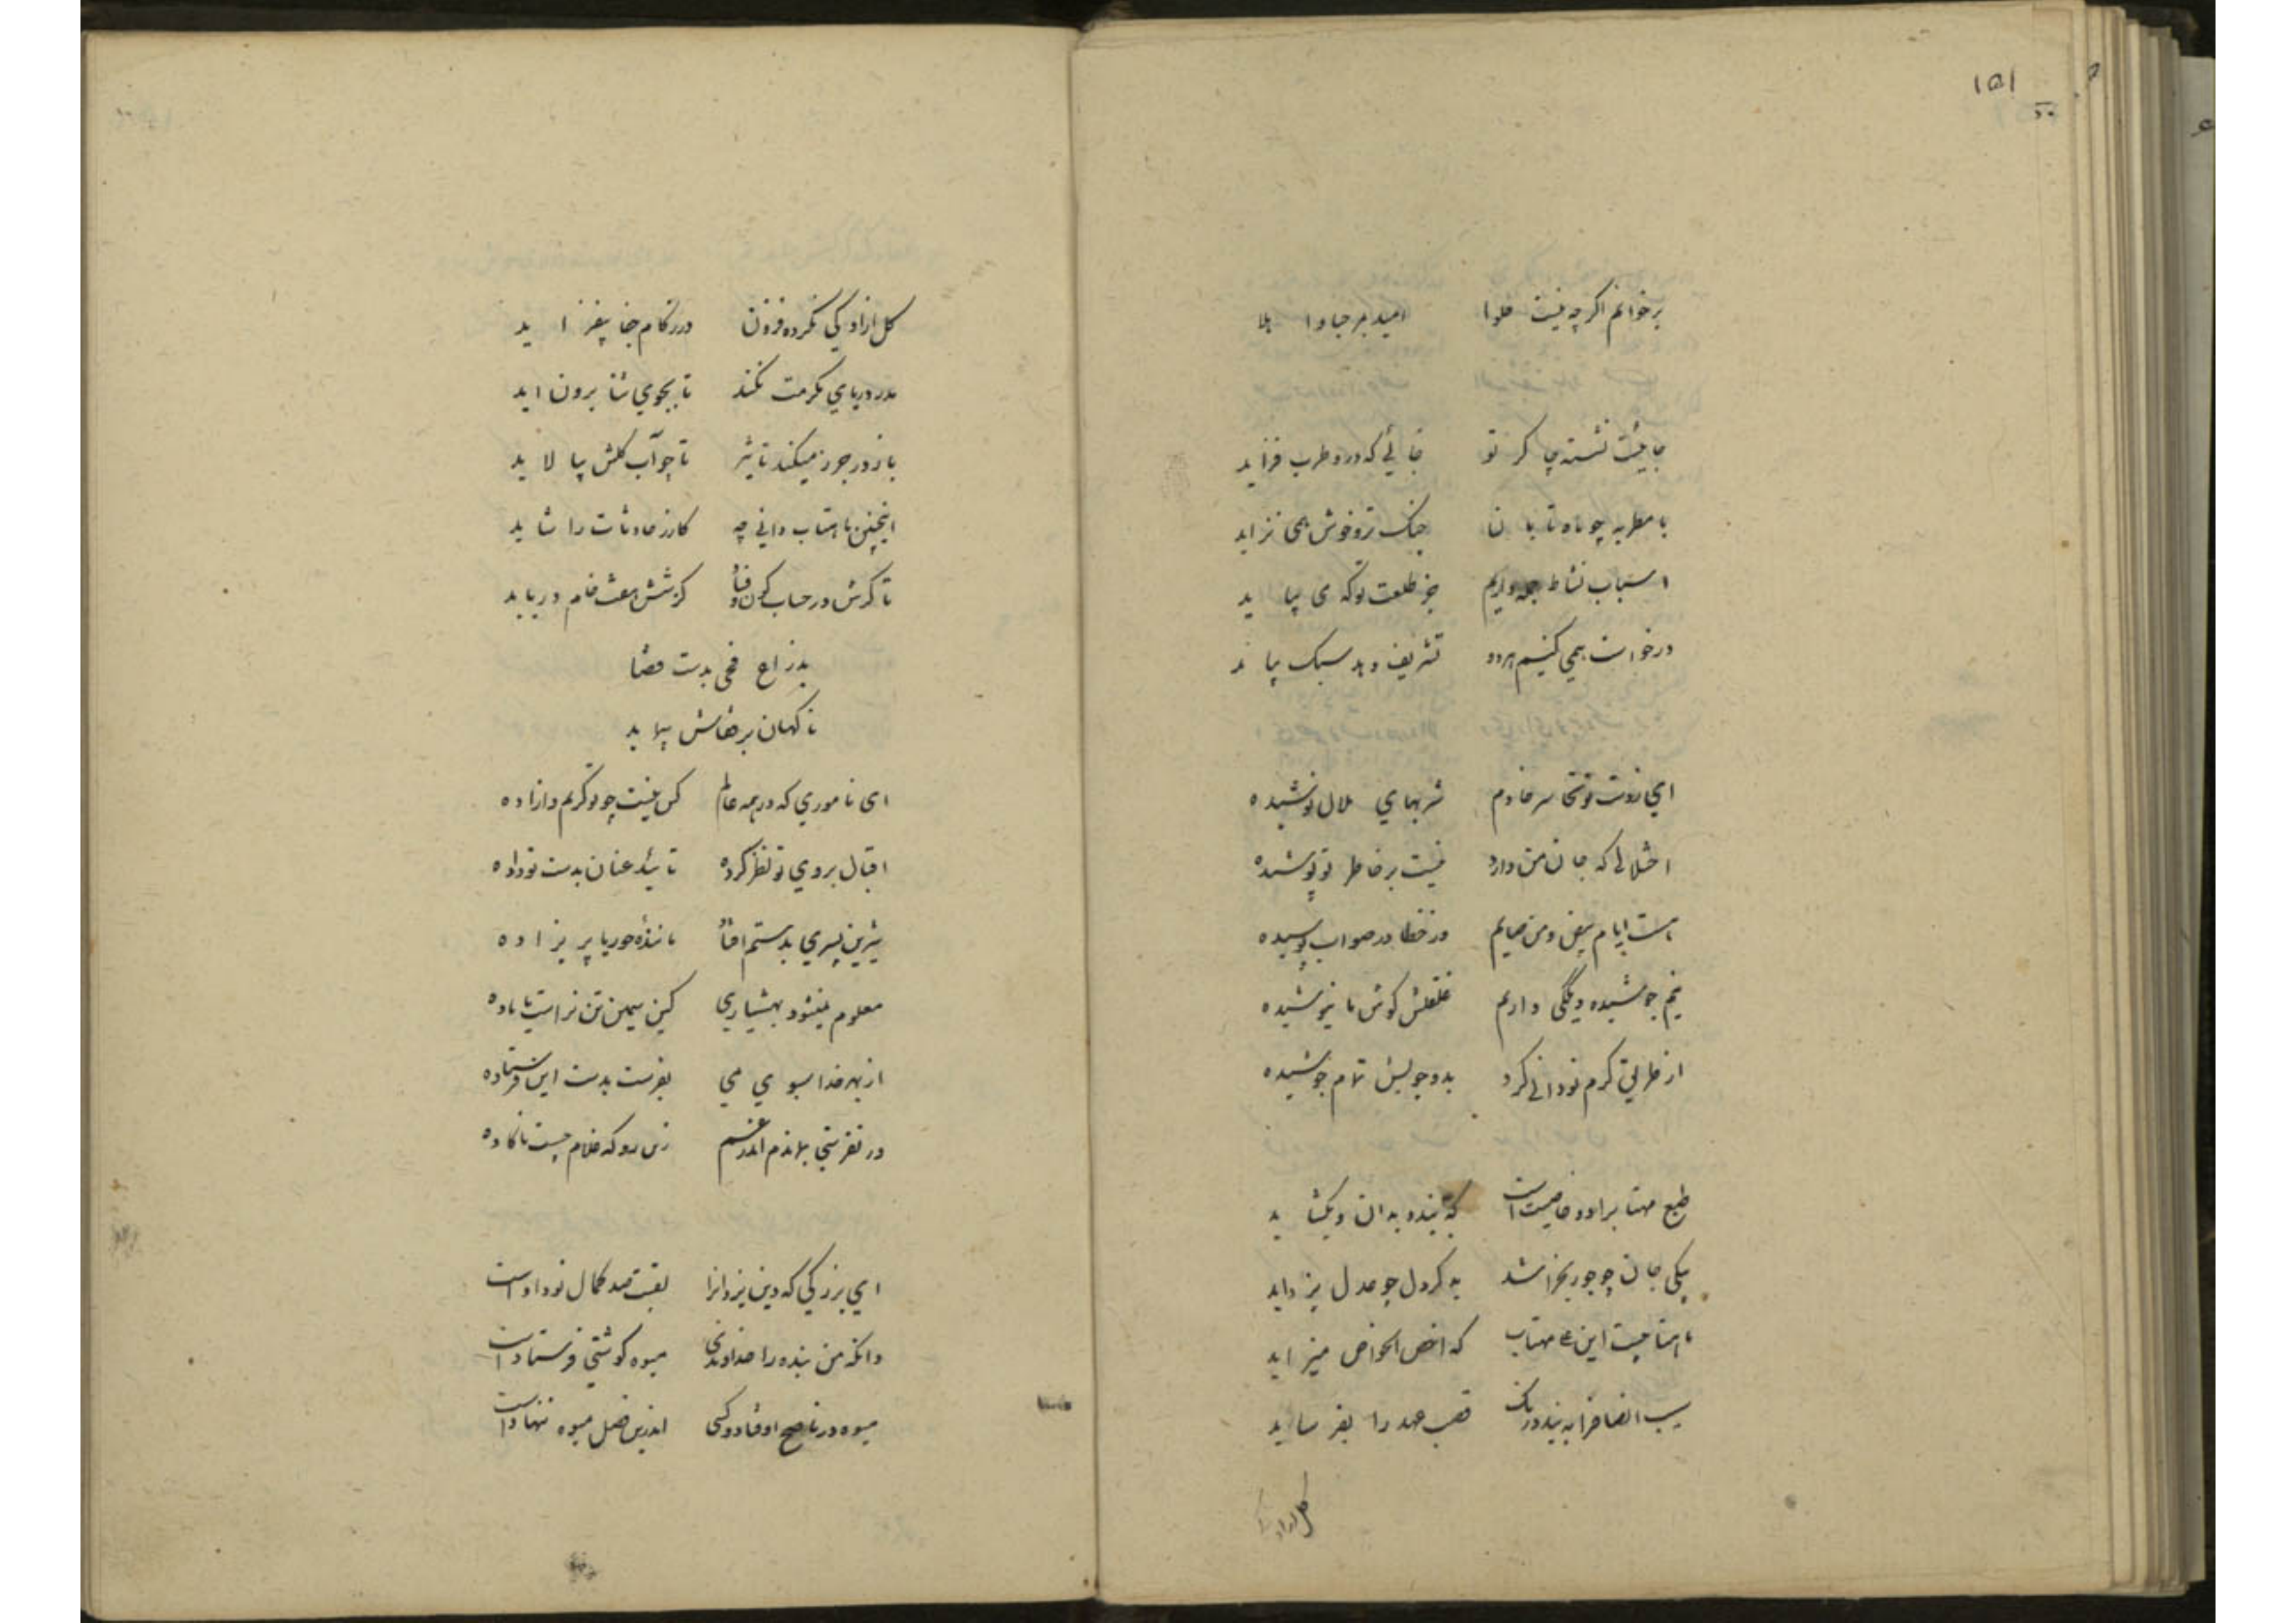 ۱۵۱
برخوانم اگرچه نیست حلوا امید بهر جا وا بلا
جائیست نشسته چاکر تو جائی که درو طرب فزاید
با مطربه چو ماه تابان چنک تر و خوش همی نزاید
اسباب نشاط جمله داریم جز طلعت تو که می بیاید
درخواست همی کنیم هر دو تشریف دهد سبک بیاید
ای ز دست تو سر خادم شربهای حلال نوشیده
اختلالی که جان من دارد نیست بر خاطر تو پوشیده
هست ایام بیض و من صایم در خطا در صواب کوسیده
نیم جوشیده دیگکی دارم غلغلش کوش نا نیوشیده
از طریق کرم توانی کرد بدو چوبش تمام جوشیده
طبع مهتاب را دو خاصیت است که ببندد بدان و بکشاید
یکی جان چو جور بخراشد به کر دل چو عدل بزداید
ماهتابیست این مهتاب که اخص الخواص میزاید
سبب انضا فرا به بندد رنک قصب عهد را بفرساید
کل ازاد
کل ازادکی نکرده فزون در زکام جفا بیفزاید
مدد دریای مکرمت نکند تا بجوی شنا برون اید
باز در جور میکند تاثیر تا چو آب کلش بپالاید
اینچنین ماهتاب دانی چه کارز حادثات را شاید
تا کرش در حساب کون و فساد کرشش هفت خام دریابد
بذراع فی بدست قضا
ناکهان بر قفاش پیماید
ای ناموری که در همه عالم کس نیست چو تو کریم و ازاده
اقبال بروی تو نظر کرده تایید عنان بدست تو داده
شیرین پسری بدستم افتاد ماننده حور یا پریزاده
معلوم نمیشود بهشیاری کین سیمین تن نر است یا ماده
از بهر خدا سبوی می بفرست بدست این فرستاده
ور نفرستی بماندم اندر غم زین رو که غلام چست ناکاده
ای بزرکی که دین یزدانرا لقبت صد کمال نو داداست
وانکه من بنده را خداوندی میوه کوشتی فرستاداست
میوه در ناضج اوفتاد و کسی اندرین فصل میوه ننهاداست